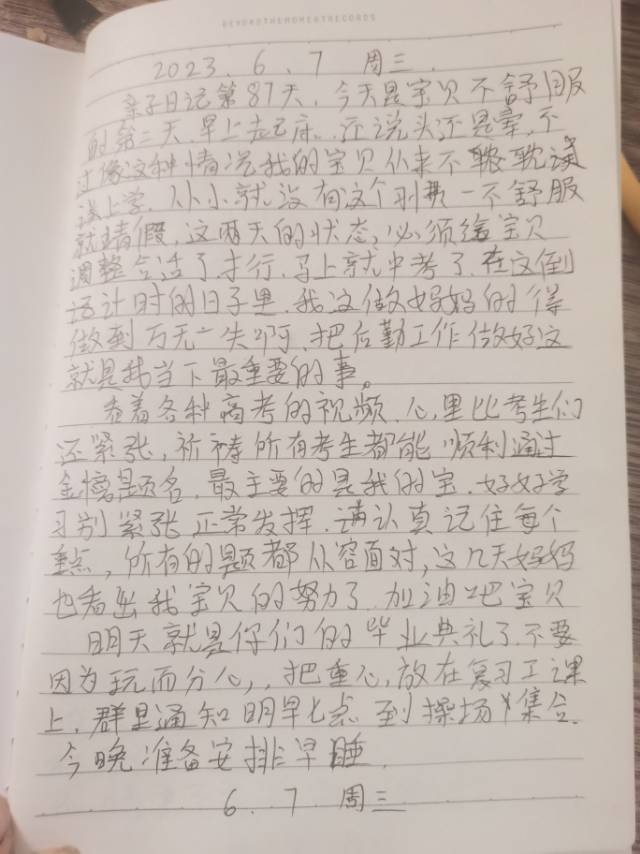 BEYONDTHEMOMENTRECORDS
2023.6.7 周三.
亲子日记第87天.今天是宝贝不舒服
的第二天.早上起床.还说头还是晕,不
过像这种情况我的宝贝从来不耽误
上学.从小就没有这个习惯一不舒服
就请假,这两天的状态,必须给宝贝
调整合适了才行.马上就中考了.在这倒
计时的日子里.我这做妈妈的得
做到万无一失啊.把后勤工作做好这
就是我当下最重要的事。
看着各种高考的视频.心里比考生们
还紧张,祈祷所有考生都能顺利通过
金榜题名.最主要的是我的宝.好好学
习别紧张正常发挥.请认真记住每个
重点,所有的题都从容面对,这几天妈妈
也看出我宝贝的努力了.加油吧宝贝
明天就是你们的毕业典礼了.不要
因为玩而分心,,把重心,放在复习工课
上.群里通知明早七点到操场集合.
今晚准备安排早睡.
6.7 周三